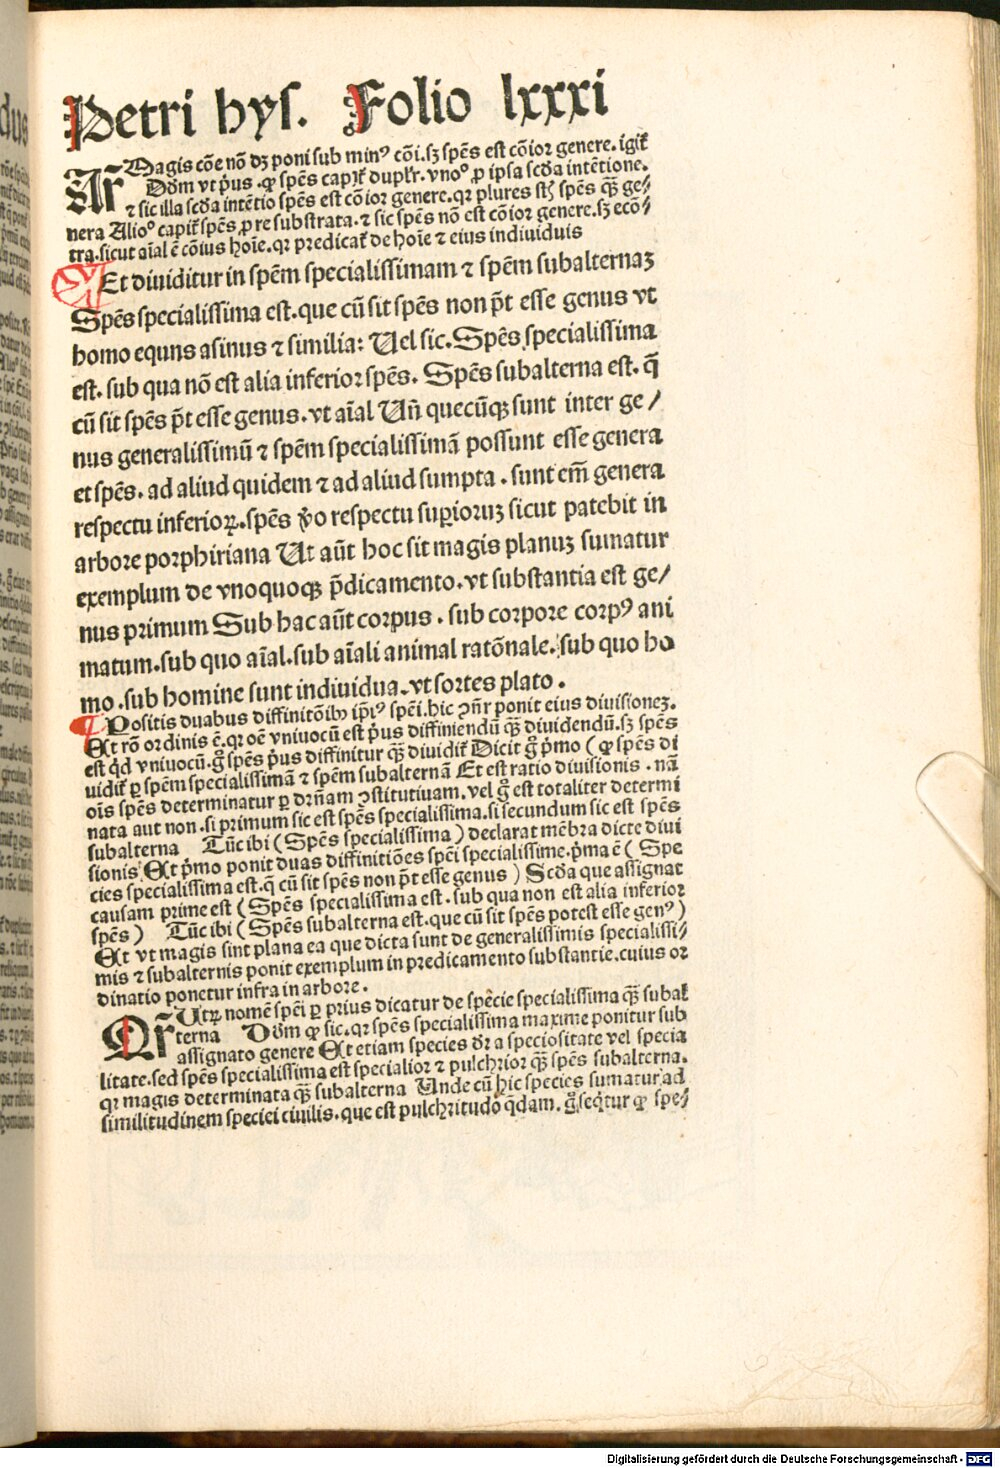 Petri hys. Folio lxxxi
Ar̃ Magis cõe nõ dꝫ poni sub minꝰ cõi. sꝫ spẽs est cõior genere. igit̃
Dõm vt p̃us. ꝙ spẽs capit̃ duplr̃. vnoᵒ ꝓ ipsa scđa intẽtione.
⁊ sic illa scđa intẽtio spẽs est cõior genere. qꝛ plures st̃ spẽs qꝫ̃ ge⸗
nera Alioᵒ capit̃ spẽs ꝓ re substrata. ⁊ sic spẽs nõ est cõior genere. sꝫ ecõ⸗
tra. sicut aĩal ẽ cõius hoĩe. qꝛ predicat̃ de hoĩe ⁊ eius indiuiduis
Et diuiditur in spẽm specialissimam ⁊ spẽm subalternaꝫ
Spẽs specialissima est. que cũ sit spẽs non p̃t esse genus vt
homo equns asinus ⁊ similia: Uel sic. Spẽs specialissima
est. sub qua nõ est alia inferior spẽs. Spẽs subalterna est. q̃
cũ sit spẽs p̃t esse genus. vt aĩal Uñ quecũqꝫ sunt inter ge/
nus generalissimũ ⁊ spẽm specialissimã possunt esse genera
et spẽs. ad aliud quidem ⁊ ad aliud sumpta. sunt em̃ genera
respectu inferioꝝ. spẽs ṽo respectu supioruꝫ sicut patebit in
arbore porphiriana Ut aũt hoc sit magis planuꝫ sumatur
exemplum de vnoquoqꝫ p̃dicamento. vt substantia est ge/
nus primum Sub hac aũt corpus. sub corpore corpꝰ ani
matum. sub quo aĩal. sub aĩali animal ratõnale. sub quo ho
mo. sub homine sunt indiuidua. vt sortes plato.
¶ Positis duabus diffinitõibꝫ ip̃iꝰ spẽi. hic ꝯñr ponit eius diuisioneꝫ.
Et rõ ordinis ẽ. qꝛ oẽ vniuocũ est p̃us diffiniendũ qꝫ̃ diuidendũ. sꝫ spẽs
est qđ vniuocũ. g̊ spẽs p̃us diffinitur qꝫ̃ diuidit̃ Dicit g̊ p̃mo (ꝙ spẽs di
uidit̃ ꝑ spẽm specialissimã ⁊ spẽm subalternã Et est ratio diuisionis. nã
oĩs spẽs determinatur ꝑ drñam ꝯstitutiuam. vel g̊ est totaliter determi
nata aut non. si primum sic est spẽs specialissima. si secundum sic est spẽs
subalterna Tũc ibi (Spẽs specialissima) declarat mẽbra dicte diui
sionis Et p̃mo ponit duas diffinitiões spẽi specialissime. p̃ma ẽ (Spe
cies specialissima est. q̃ cũ sit spẽs non p̃t esse genus) Scđa que assignat
causam prime est (Spẽs specialissima est. sub qua non est alia inferior
spẽs) Tũc ibi (Spẽs subalterna est. que cũ sit spẽs potest esse genꝰ)
Et vt magis sint plana ea que dicta sunt de generalissimis specialissi⸗
mis ⁊ subalternis ponit exemplum in predicamento substantie. cuius or
dinatio ponetur infra in arbore.
Qr̃ Utꝝ nomẽ spẽi ꝑ prius dicatur de spẽcie specialissima qꝫ̃ subal
terna Dõm ꝙ sic. qꝛ spẽs specialissima maxime ponitur sub
assignato genere Et etiam species đr a speciositate vel specia
litate. sed spẽs specialissima est specialior ⁊ pulchrior qꝫ̃ spẽs subalterna.
qꝛ magis determinata qꝫ̃ subalterna Unde cũ hic species sumatur ad
similitudinem speciei ciuilis. que est pulchritudo q̃dam. g̊ seq̃tur ꝙ spe⸗
Digitalisierung gefördert durch die Deutsche Forschungsgemeinschaft - DFG